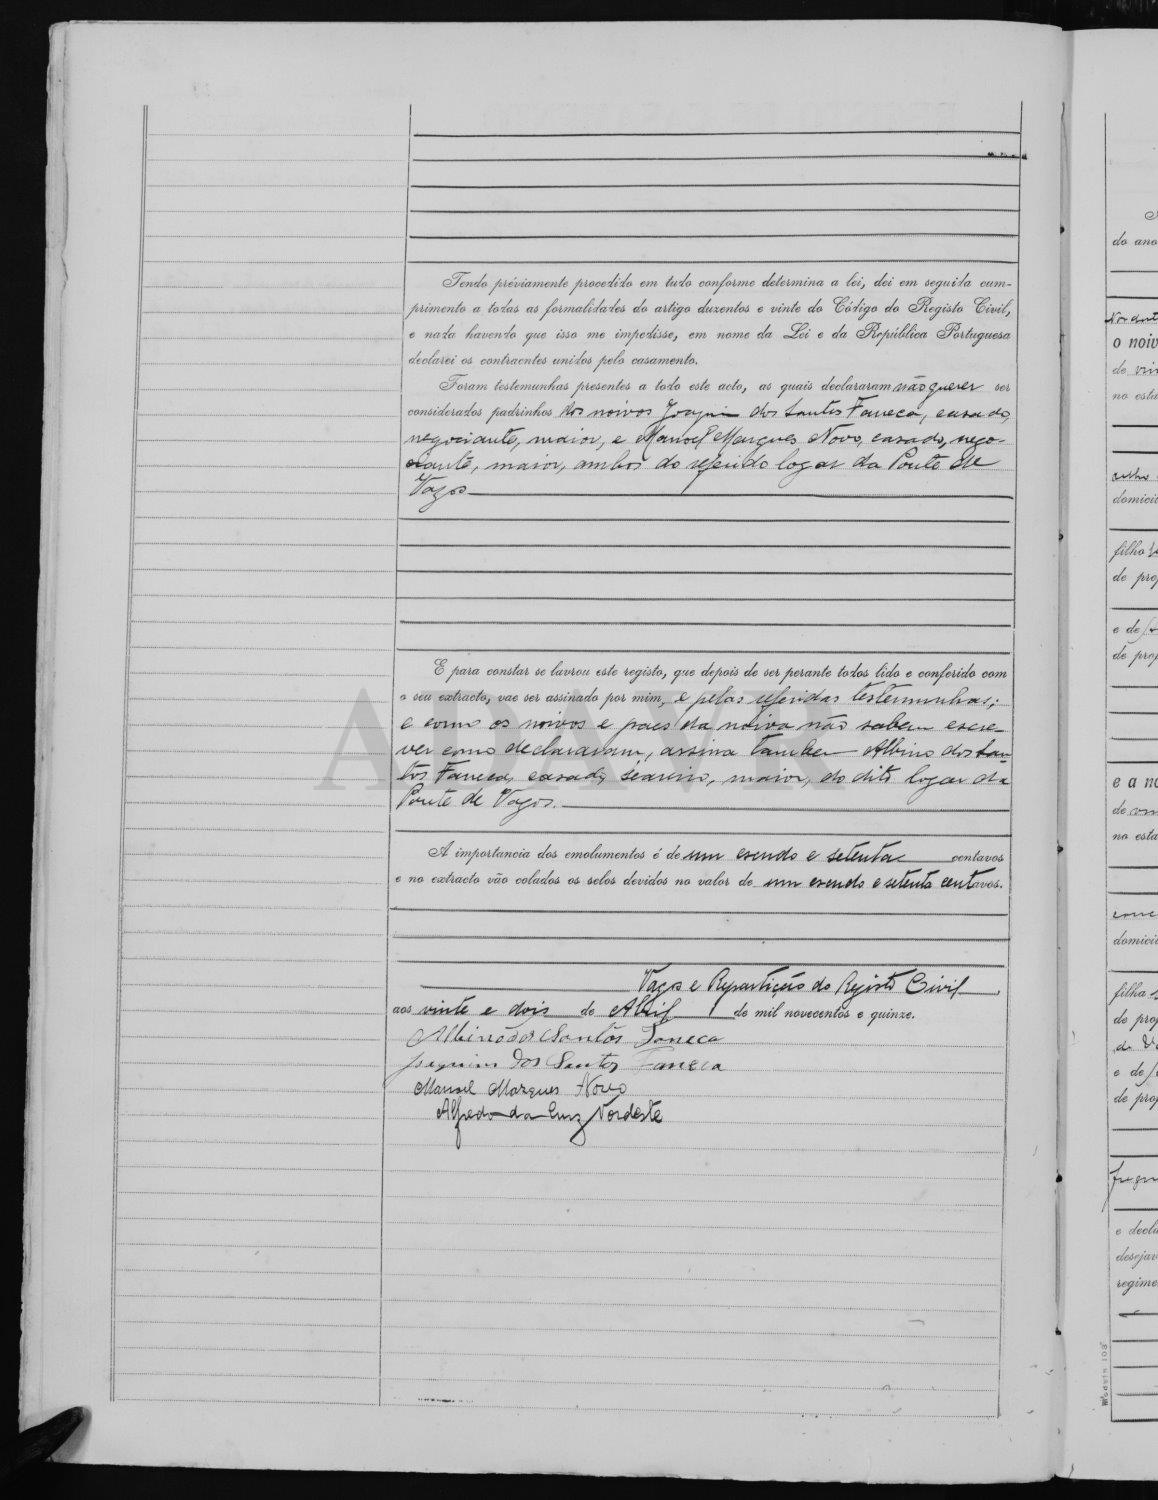 Tendo préviamente procedido em tudo conforme determina a lei, dei em seguida cum-
primento a todas as formalidades do artigo duzentos e vinte do Código do Registo Civil,
e nada havendo que isso me impedisse, em nome da Lei e da República Portuguesa
declarei os contraentes unidos pelo casamento.
Foram testemunhas presentes a todo este acto, as quais declararam não querer ser
considerados padrinhos dos noivos Joaquim dos Santos Faneca, casado,
negociante, maior, e Manoel Marques Novo, casado, nego-
ciante, maior, ambos do referido logar da Ponte de
Vagos
E para constar se lavrou este registo, que depois de ser perante todos lido e conferido com
o seu extracto, vae ser assinado por mim, e pelas referidas testemunhas;
e como os noivos e paes da noiva não sabem escre-
ver como declararam, assina tambem Albino dos San-
tos Faneca, casado, maior, do dito logar da
Ponte de Vagos.
A importancia dos emolumentos é de um escudo e setenta centavos
e no extracto vão colados os selos devidos no valor de um escudo e setenta centavos.
Vagos e Repartição do Registo Civil,
aos vinte e dois de Abril de mil novecentos e quinze.
Albino dos Santos Faneca
Joaquim dos Santos Faneca
Manoel Marques Novo
Alfredo da Luz Nordeste
do ano
Nordeste
o noiv
no esta
domicil
filho
de prop
e de
de prop
e a no
no esta
domicil
filha
de prop
e de
de prop
e decla
desejav
regime